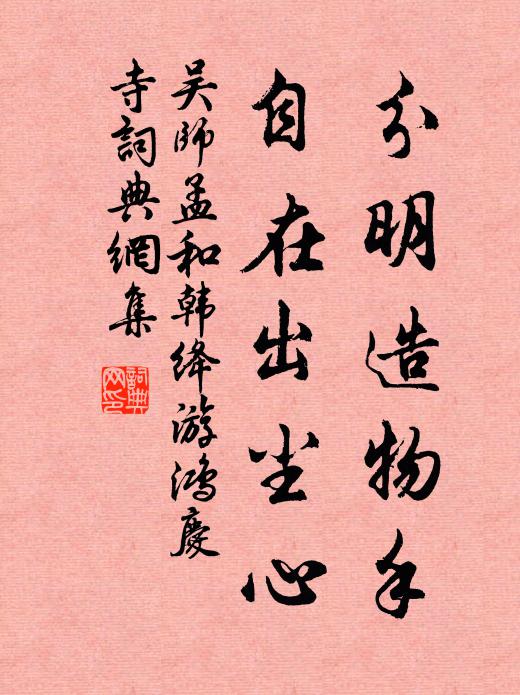 分明造物手
自在出尘心
吴师孟和韩绛游鸿慶
寺詞典網集
詞典
网印